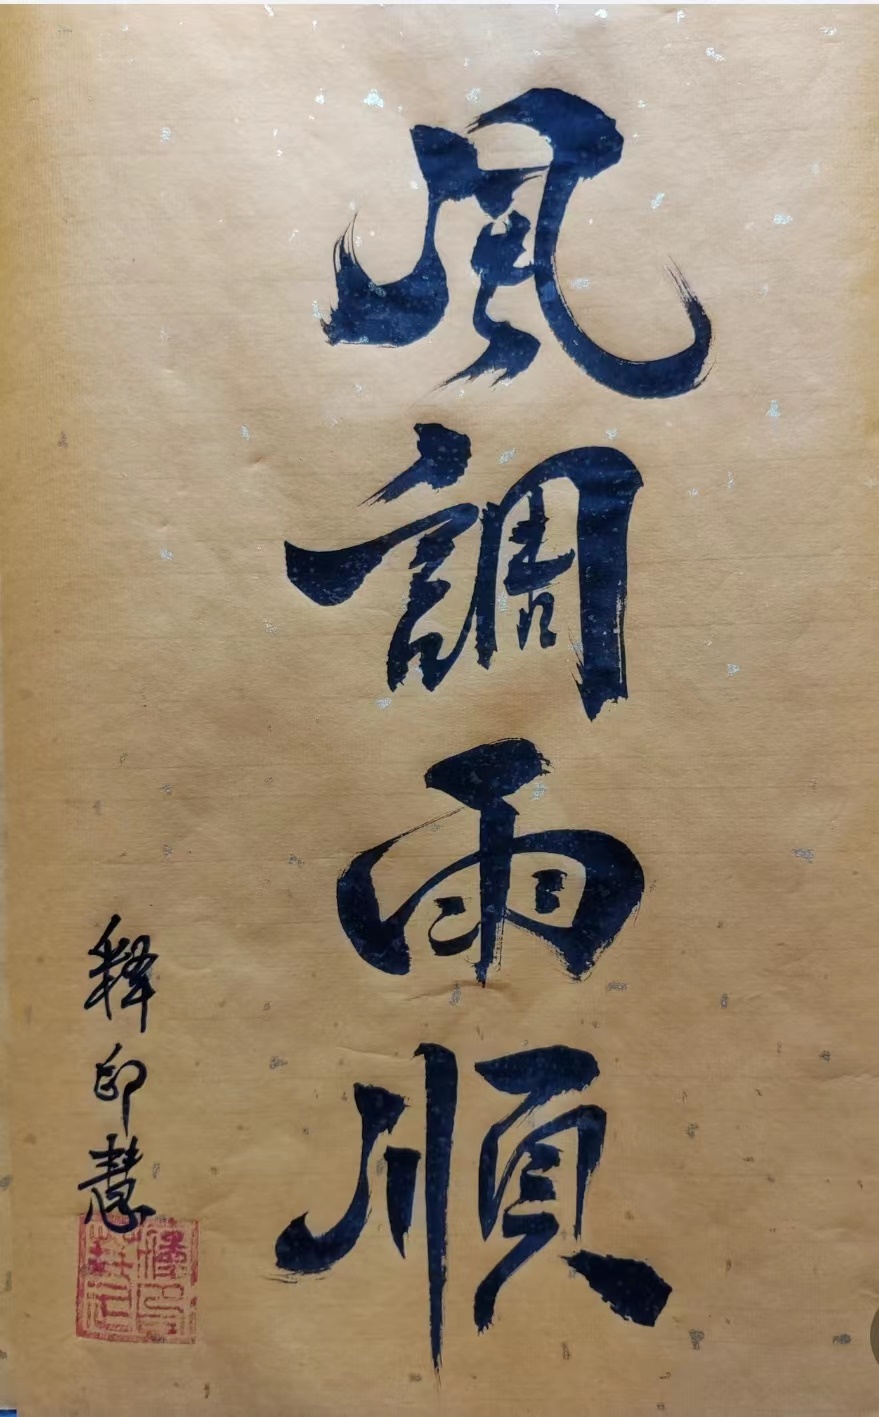 風調雨順
釋印慧